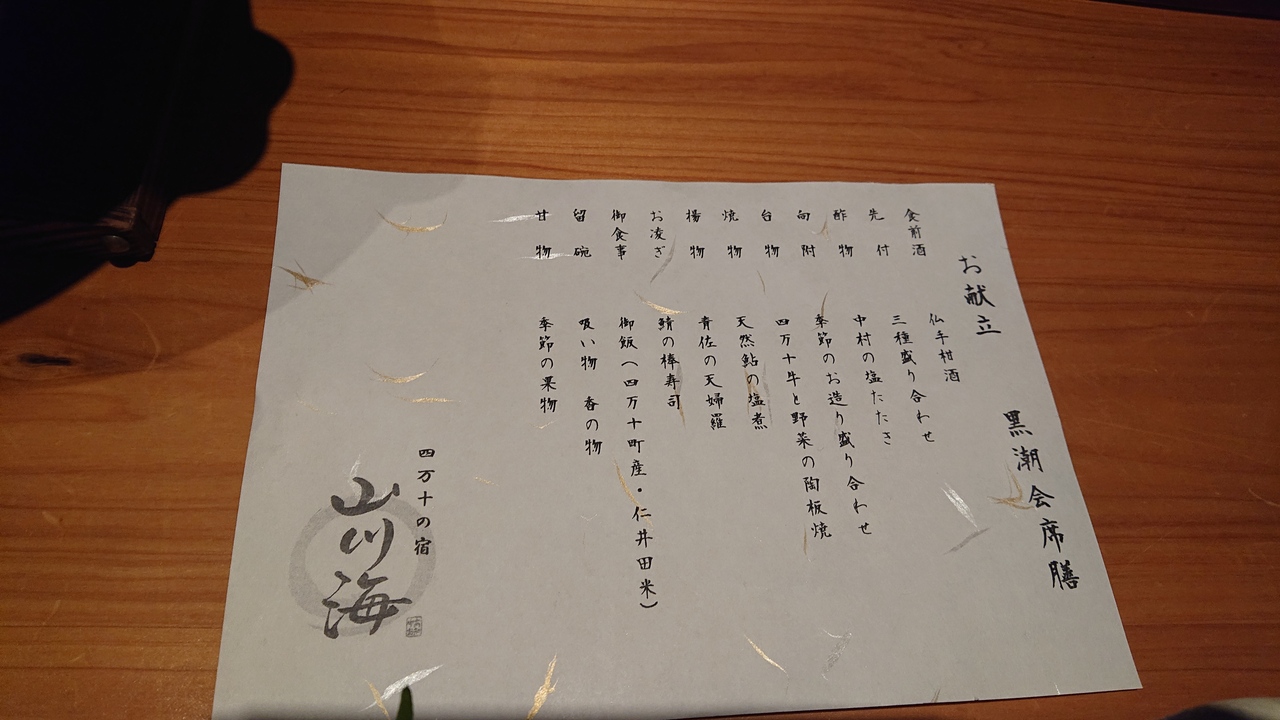 お献立
黒潮会席膳
食前酒 仏手柑酒
先付 三種盛り合わせ
酢物 中村の塩たたき
向附 季節のお造り盛り合わせ
台物 四万十牛と野菜の陶板焼
焼物 天然鮎の塩煮
揚物 青佐の天婦羅
お凌ぎ 鯖の棒寿司
御食事 御飯(四万十町産・仁井田米)
留碗 吸い物 香の物
甘物 季節の果物
四万十の宿
山川海